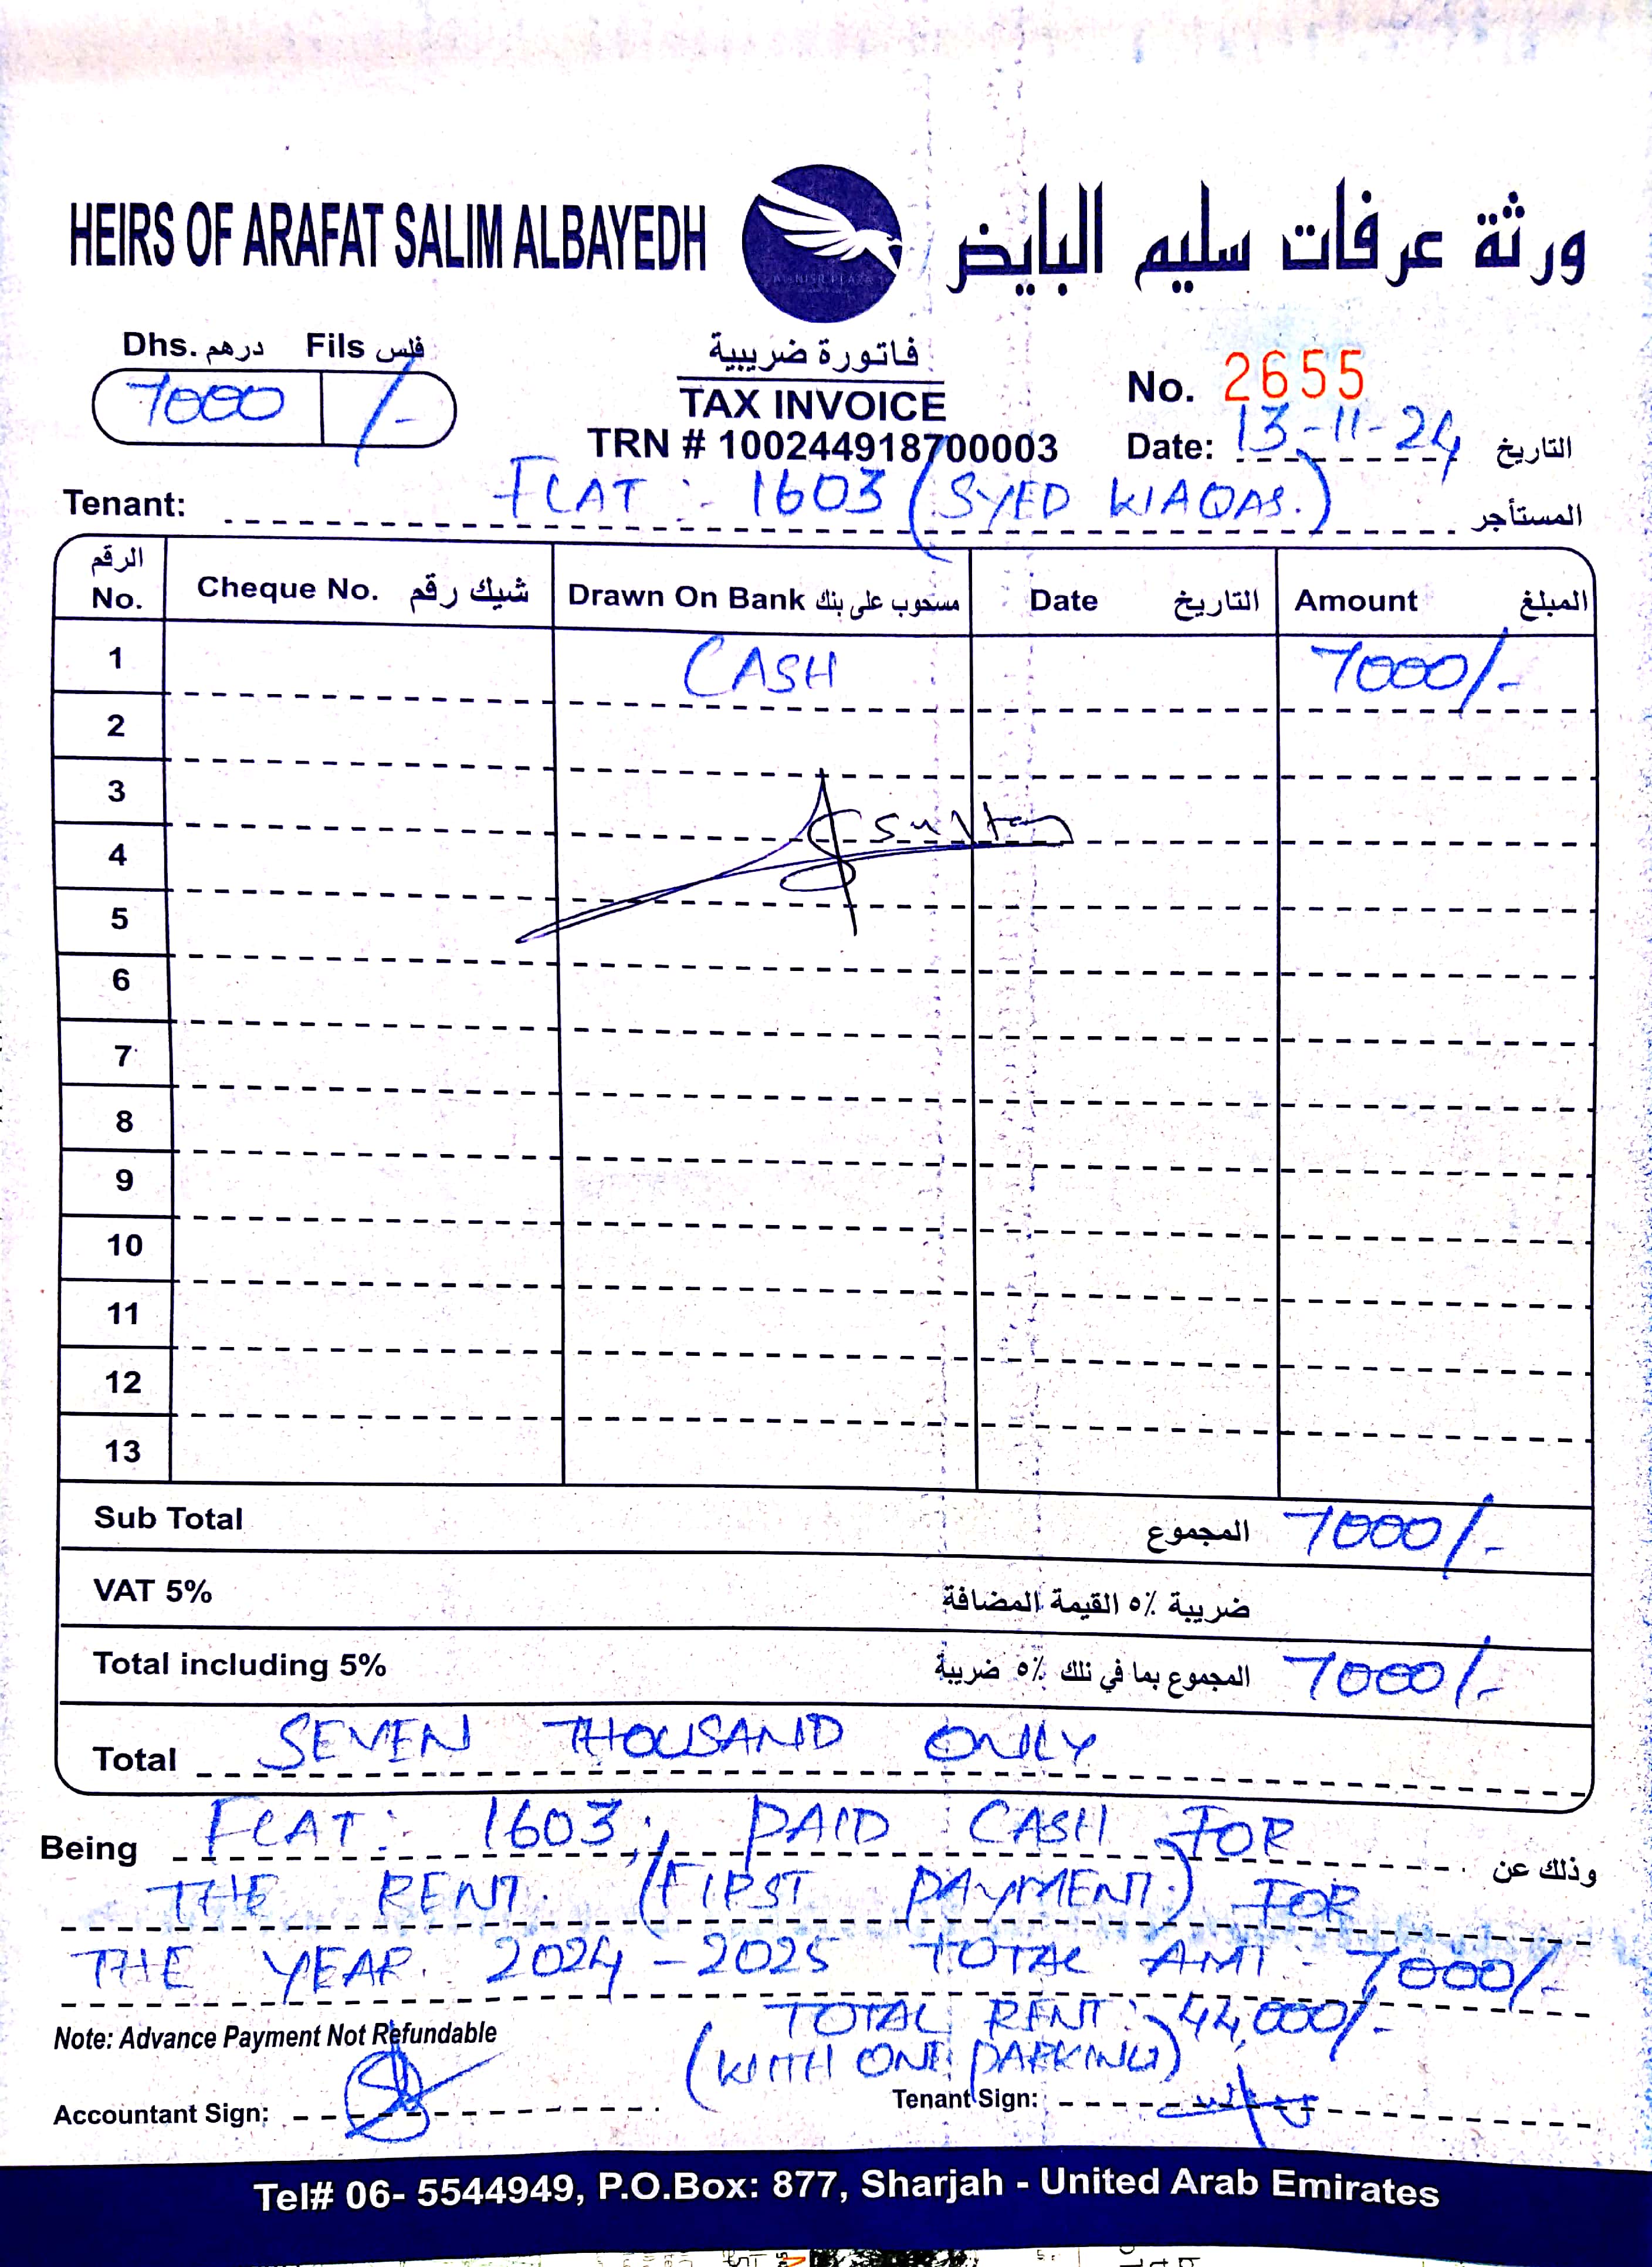 HEIRS OF ARAFAT SALIM ALBAYEDH
ورثة عرفات سليم البايض
AL NISR PLAZA
Dhs. درهم Fils فلس
7000 /-
فاتورة ضريبية
TAX INVOICE
TRN # 100244918700003
No. 2655
Date: 13-11-24 التاريخ
Tenant: FLAT :- 1603 (SYED WAQAS.) المستأجر
الرقم No. Cheque No. شيك رقم Drawn On Bank مسحوب على بنك Date التاريخ Amount المبلغ
1 CASH 7000/-
2
3
Sultan
4
5
6
7
8
9
10
11
12
13
Sub Total المجموع 7000/-
VAT 5% ضريبة ٥٪ القيمة المضافة
Total including 5% المجموع بما في تلك ٥٪ ضريبة 7000/-
Total SEVEN THOUSAND ONLY
Being FLAT:- 1603:, PAID CASH FOR وذلك عن
THE RENT. (FIRST PAYMENT.) FOR
THE YEAR. 2024-2025 TOTAL AMT:- 7000/-
TOTAL RENT: 44,000/-
Note: Advance Payment Not Refundable
(WITH ONE PARKING)
Accountant Sign:
Tenant Sign:
Tel# 06- 5544949, P.O.Box: 877, Sharjah - United Arab Emirates